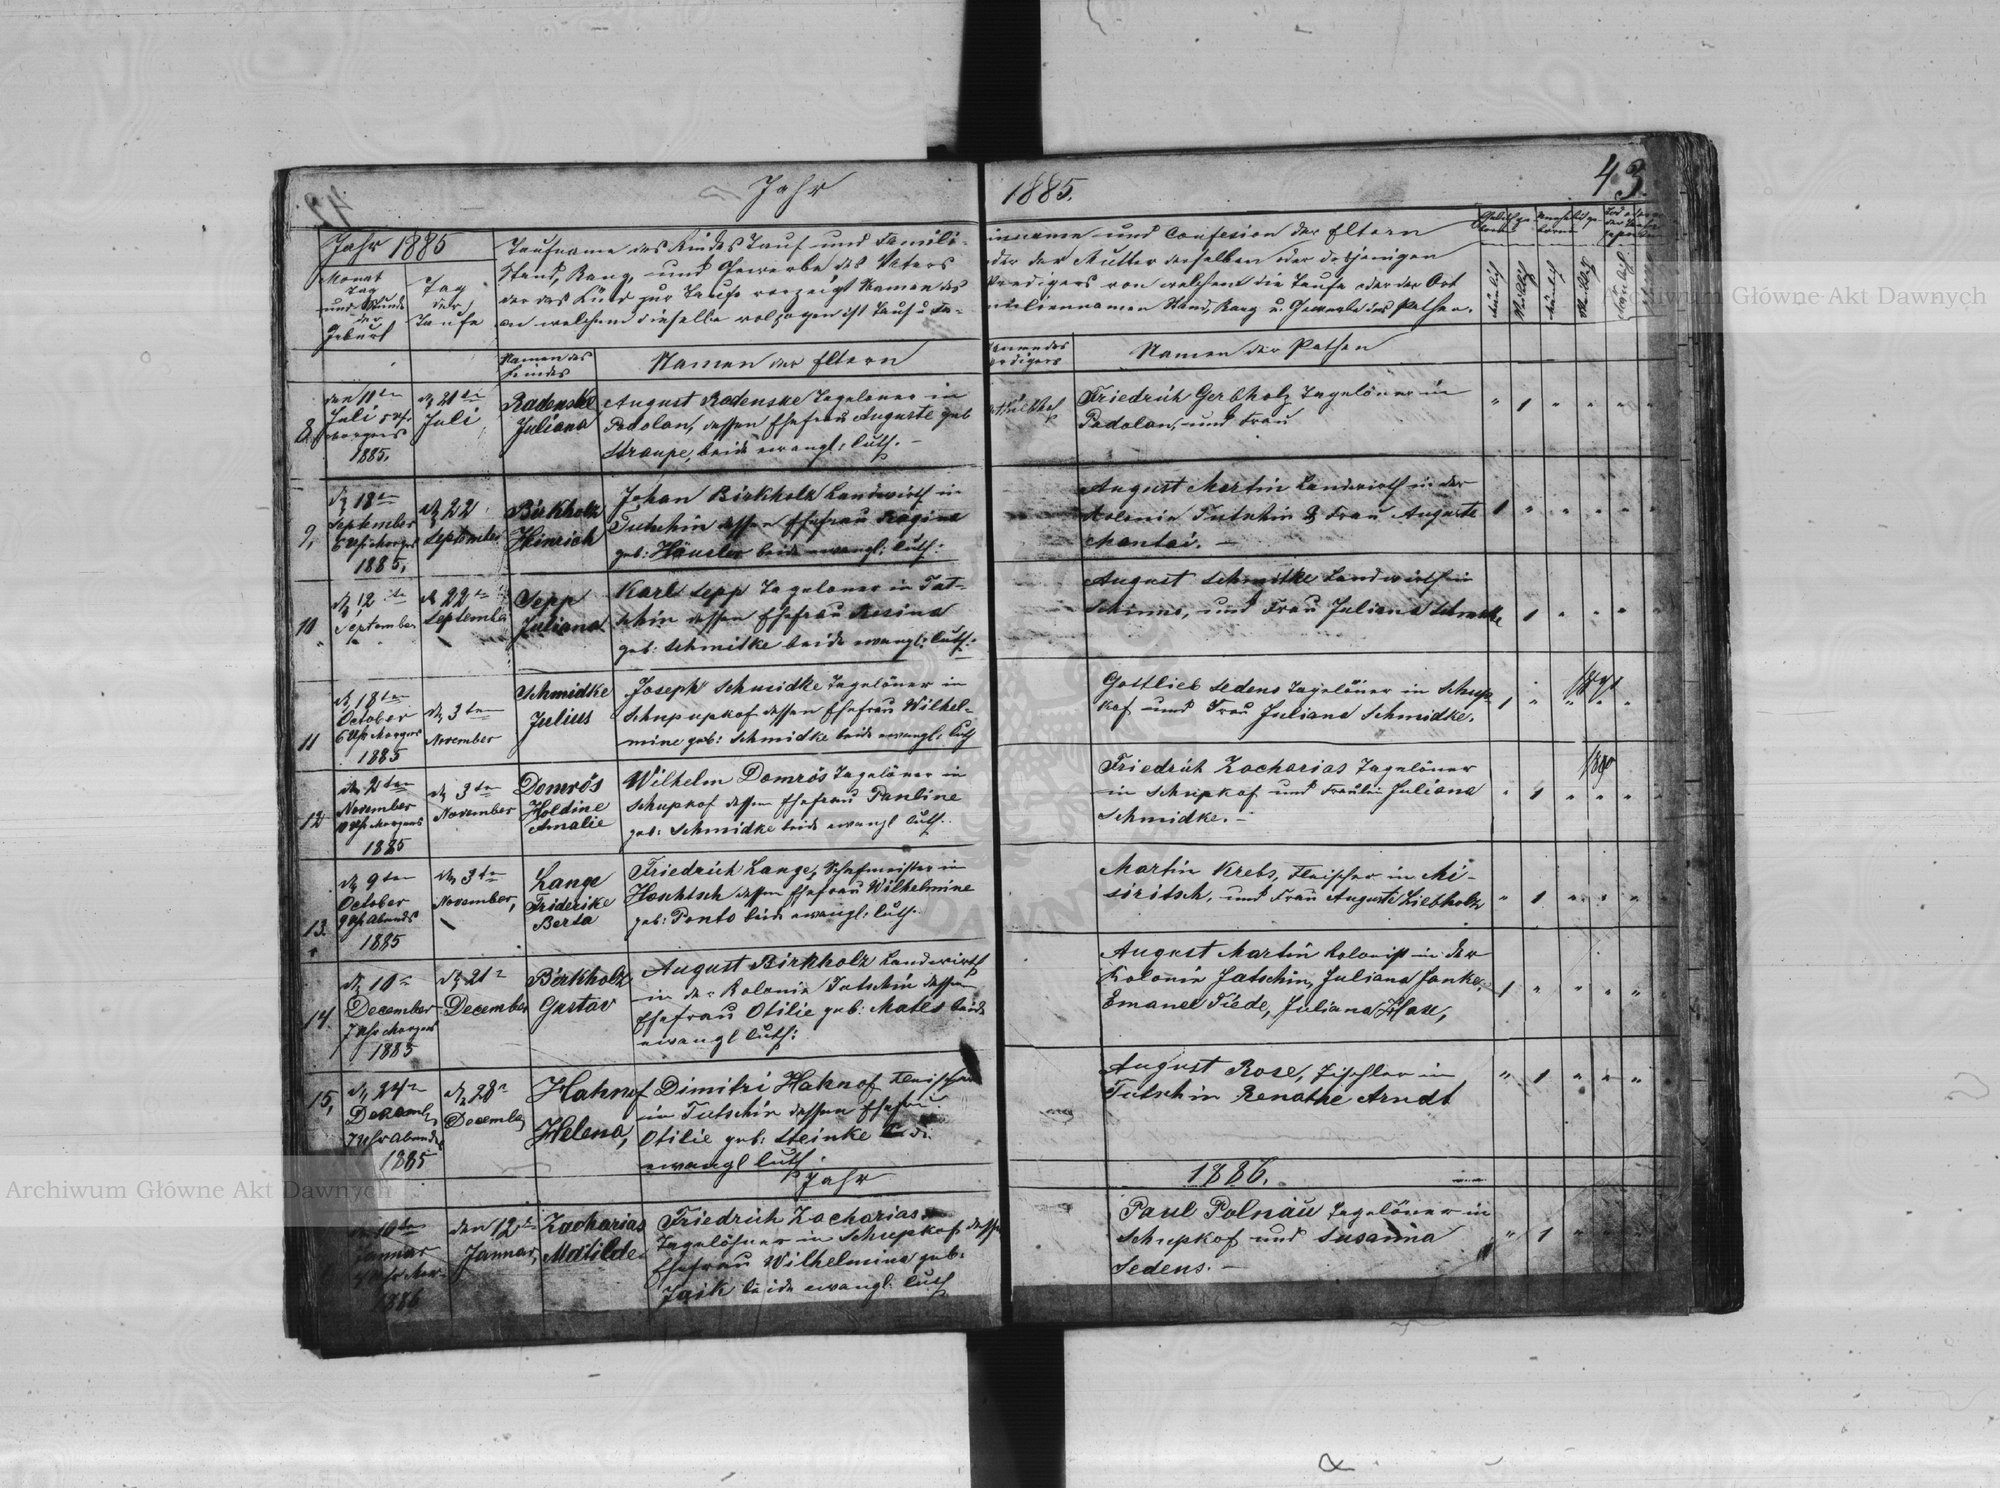 Jahr 1885.
43
Jahr 1885
Monat
Tag
und Stunde
der
Geburt
Tag
der
Taufe
Taufname des Kindes Tauf und Famili-
Stand, Rang, und Gewerbe des Vaters
der das Kind zur Taufe vorzeigt Namen des
an welchem dieselbe volzogen ist Tauf u Fa-
enname und Confesion der Eltern
oder der Mutter derselben oder desjenigen
Predigers von welchem die Taufe oder der Ort
miliennamen Stand, Rang u. Gewerbe des Pathen.
Namen des
Kindes
Namen der Eltern
Namen des
Predigers
Namen der Pathen
8.
den 11ten
Juli 5 Uhr
Morgens
1885.
d 21ten
Juli
Radenske
Juliana
August Radenske Tagelöner in
Podolan, dessen Ehefrau Auguste geb
Straupe, beide evangl: luth. –
Friedrich Gerbholz Tagelöner in
Podolan, und Frau
" 1 " " " "
9,
d 18ten
September
6 Uhr Morgs
1885,
d 22
September
Birkholz
Heinrich
Johan Birkholz Landwirth in
Tutschin dessen Ehefrau Regine
geb: Häusler beide evangl: luth:
August Martin Landwirth in der
Kolonie Tutschin & Frau Auguste
Mantai. –
1 " " " " "
10
d 12ten
September
d 22ten
September
Sepp
Juliana
Karl Sepp Tagelöner in Tut-
schin dessen Ehefrau Rosina
geb: Schmidke beide evangl: luth:
August Schmidke Landwirth in
und Frau Juliana
1 " " " "
11
d 18ten
October
6 Uhr Morgens
1885
d 3ten
November
Schmidke
Julius
Joseph Schmidke Tagelöner in
Schupupkof dessen Ehefrau Wilhel-
mine geb: Schmidke beide evangl: luth
Gottlieb Sedens Tagelöner in Schup-
kof und Frau Juliana Schmidke.
1 " " " " "
12
den 2ten
November
Uhr Morgens
1885
d 3ten
November
Domrös
Holdine
Amalie
Wilhelm Domrös Tagelöner in
Schupkof dessen Ehefrau Pauline
geb: Schmidke beide evangl luth.
Friedrich Zacharias Tagelöner
in Schupkof und Fräulein Juliana
Schmidke. –
" 1 " " " "
13.
d 9ten
October
9 Uhr Abends
1885
den 3ten
November,
Lange
Friderike
Berta
Friedrich Lange, Schafmeister in
Hoschtsch dessen Ehefrau Wilhelmine
geb: Ponto beide evangl: luth.
Martin Krebs, Fleischer in Mi-
siritsch, und Frau Auguste Liebholz
" 1 " " " "
14.
d 10ten
December
7 Uhr Morgens
1885
d 21ten
December
Birkholz
Gustav
August Birkholz Landwirth
in der Kolonie Tutschin dessen
Ehefrau Otilie geb: Mates beide
evangl luth:
August Martin Kolonist in der
Kolonie Jatschin, Juliana Janke,
Emanel Tiede, Juliana Hase,
1 " " " " "
15,
d 24ten
Decemb,
7 Uhr Abends
1885
d 28ten
December
Hahnof
Helena,
Dimitri Hahnof Fleischer
in Tutschin dessen Ehefrau
Otilie geb: Steinke beide
evangl luth.
August Rose, Tischler in
Tutschin Renathe Arndt
" 1 " " "
Jahr 1886.
10ten
Januar
1886
den 12ten
Januar,
Zacharias
Matilde
Friedrich Zacharias
Tagelöhner in Schupkof dessen
Ehefrau Wilhelmina geb:
Jaik beide evangl: luth
Paul Polnau Tagelöner in
Schupkof und Susanna
Sedens. –
" 1 "
Archiwum Główne Akt Dawnych
Archiwum Główne Akt Dawnych